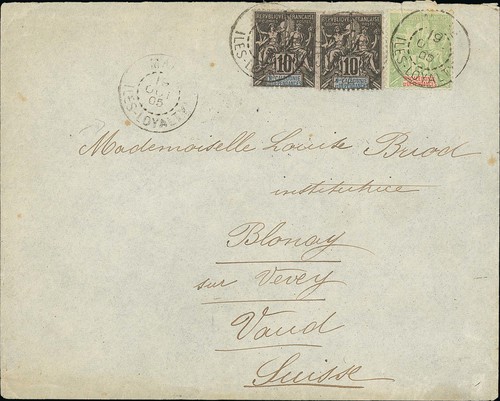 REPUBLIQUE FRANÇAISE
10
REPUBLIQUE FRANÇAISE
10
19
05
ILES-LOYALTY
05
ILES-LOYALTY
Mademoiselle Louise Briod
institutrice
Blonay
sur Vevey
Vaud
Suisse